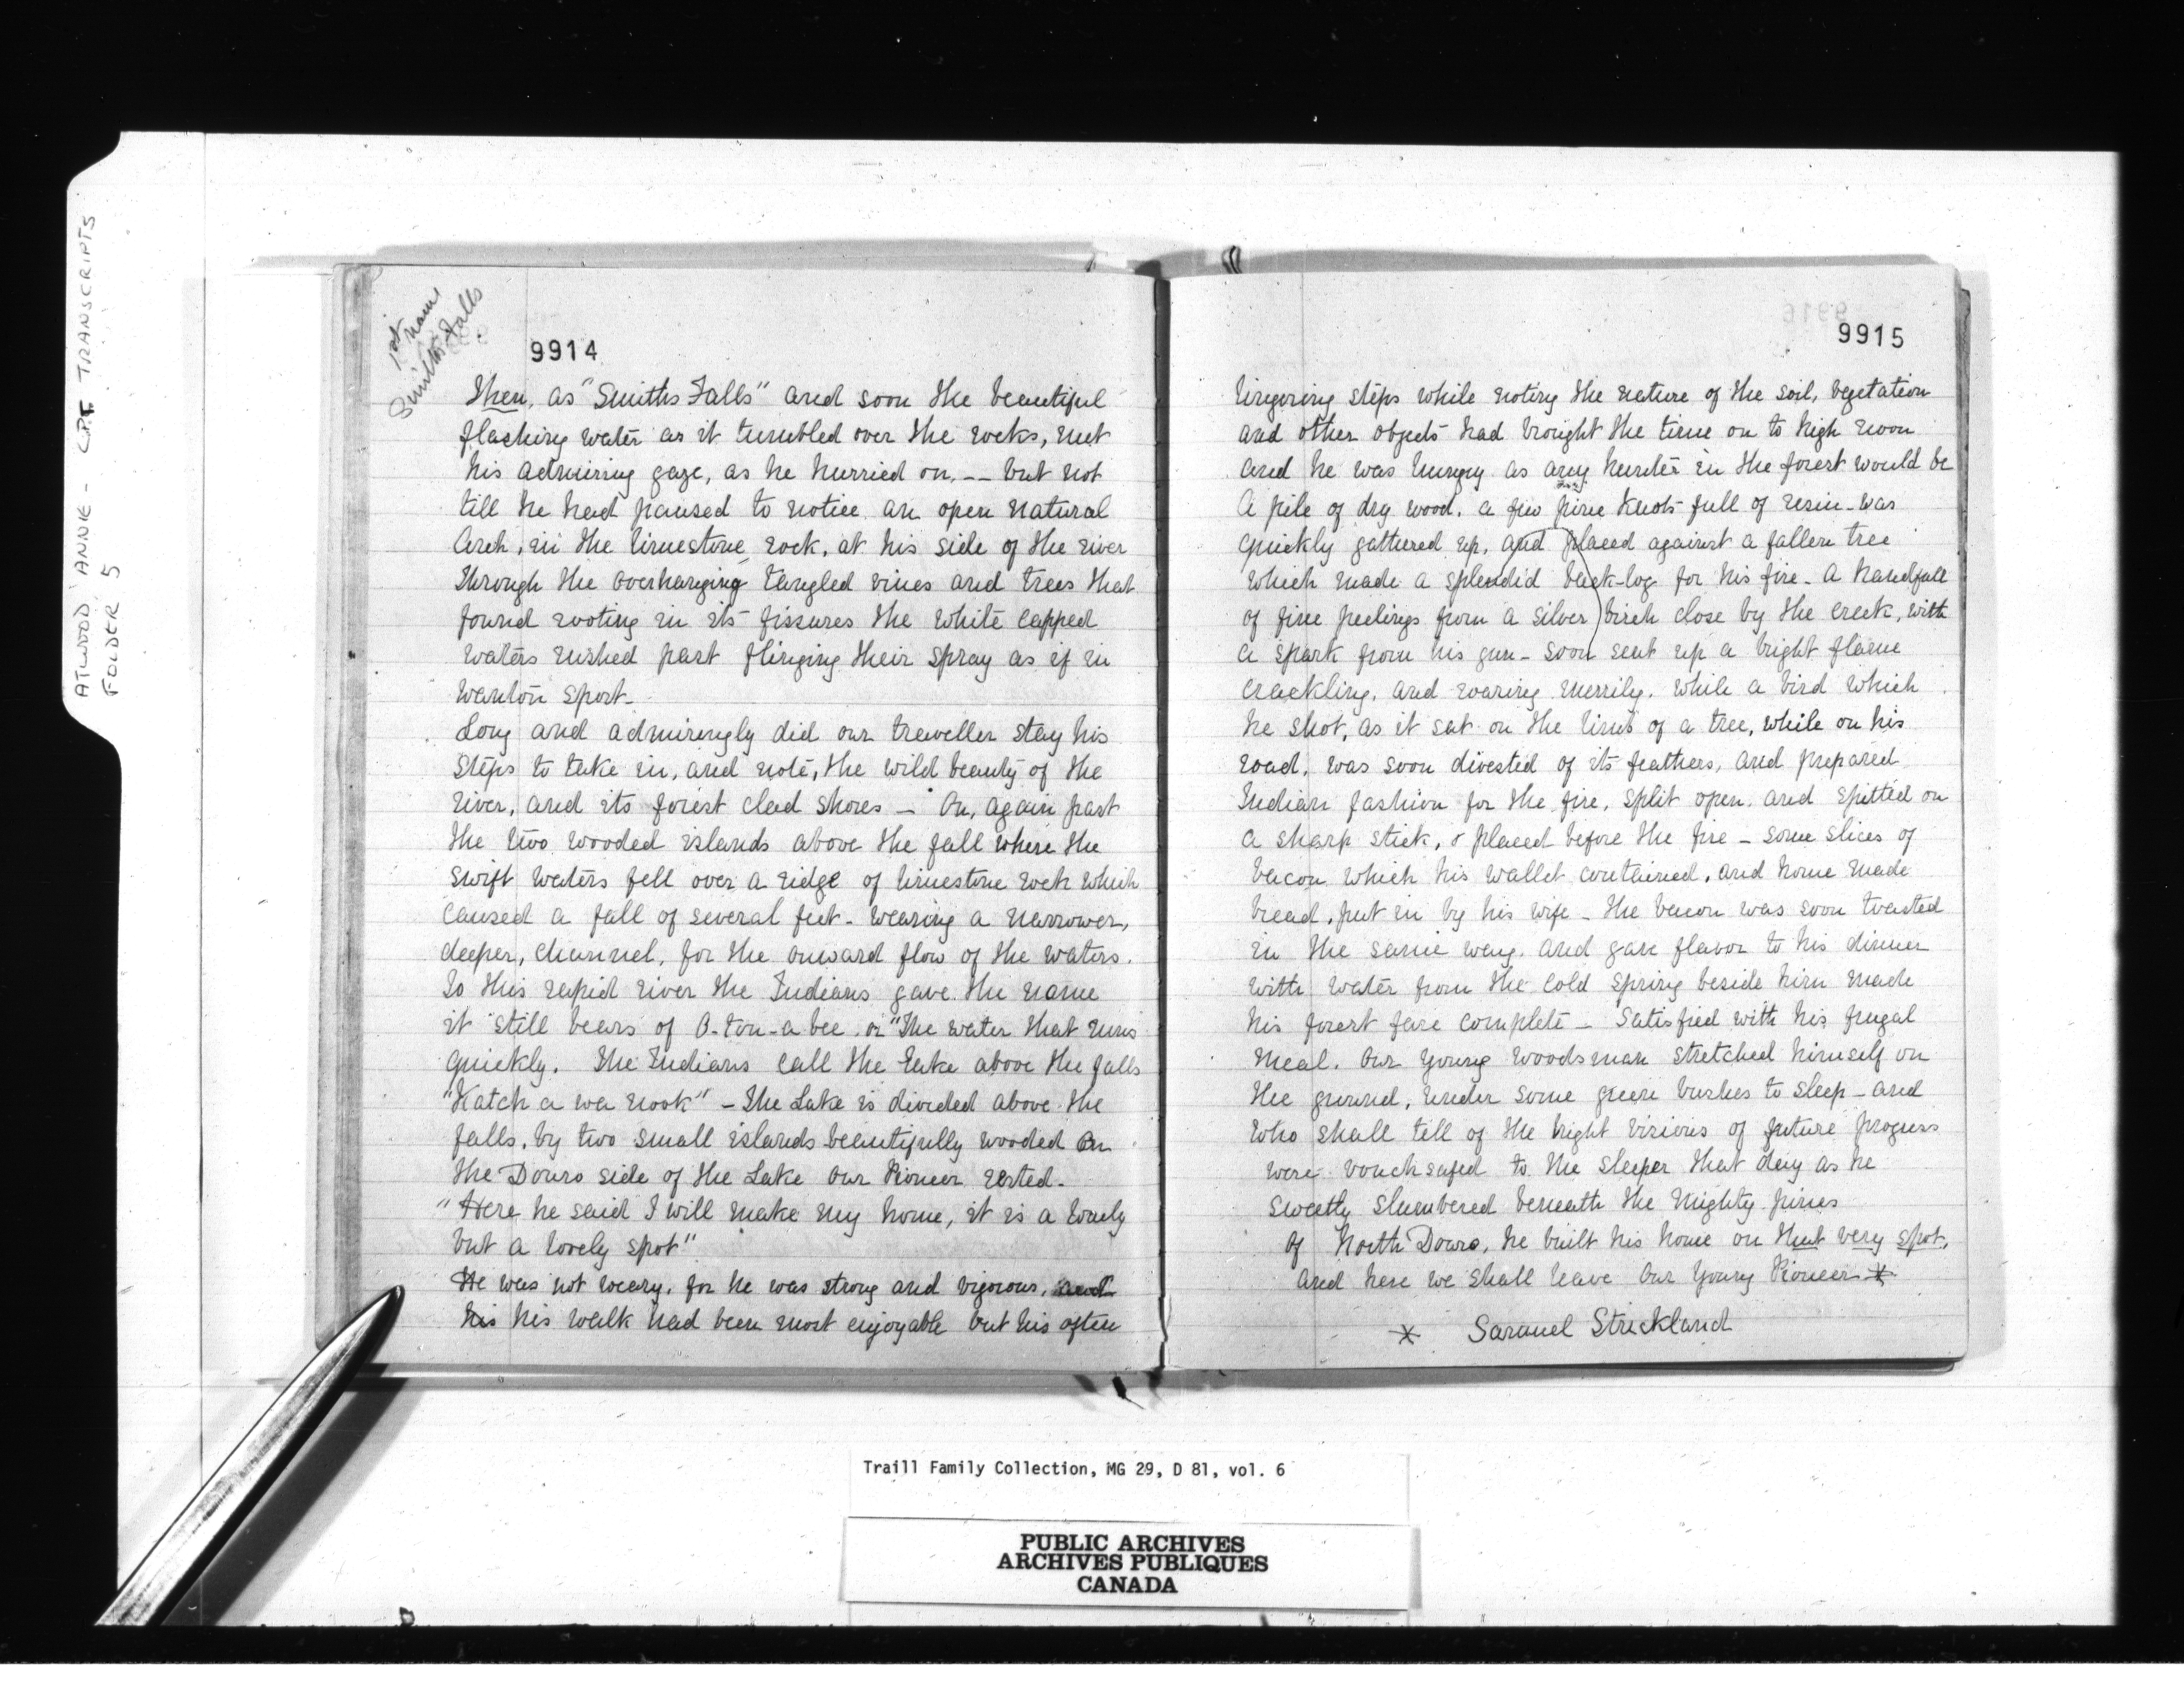 ATWOOD, ANNE - CPT TRANSCRIPTS
FOLDER 5
1st name
Smiths Falls
9914
Then, as "Smiths Falls" and soon the beautiful
flashing water as it tumbled over the rocks, met
his admiring gaze, as he hurried on, -- but not
till he had paused to notice an open natural
Arch, in the limestone rock, at his side of the river
through the overhanging tangled vines and trees that
found rooting in its fissures the white capped
waters rushed past flinging their spray as if in
wanton sport-
Long and admiringly did our traveller stay his
steps to take in, and note, the wild beauty of the
river, and its forest clad shores - On, again past
the two wooded islands above the fall where the
swift waters fell over a ridge of limestone rock which
caused a fall of several feet - wearing a narrower,
deeper, channel, for the onward flow of the waters.
To this rapid river the Indians gave the name
it still bears of O-ton-a bee or "The water that runs
quickly. The Indians call the Lake above the falls
"Katch a wa nook" - The Lake is divided above the
falls, by two small islands beautifully wooded On
the Douro side of the Lake our Pioneer rested.
"Here he said I will make my home, it is a lonely
but a lovely spot"
He was not weary, for he was strong and vigorous, and
his his walk had been most enjoyable but his often
9915
lingering steps while noting the nature of the soil, vegetation
and other objects had brought the time on to high noon
and he was hungry as any hunter in the forest would be
A pile of dry wood, a few pine knots full of resin - was
quickly gathered up, and placed against a fallen tree
which made a splendid back-log for his fire - A handfull
of fine peelings from a silver birch close by the creek, with
a spark from his gun - soon sent up a bright flame
crackling, and roaring merrily. While a bird which
he shot, as it sat on the limb of a tree, while on his
road, was soon divested of its feathers, and prepared
Indian fashion for the fire, split open, and spitted on
a sharp stick, & placed before the fire - some slices of
bacon which his wallet contained, and home made
bread, put in by his wife - the bacon was soon toasted
in the same way, and gave flavor to his dinner
with water from the cold spring beside him made
his forest fare complete - Satisfied with his frugal
meal, our young woodsman stretched himself on
the ground, under some green bushes to sleep - and
who shall tell of the bright visions of future progress
were vouchsafed to the sleeper that day as he
sweetly slumbered beneath the mighty pines
of North Douro, he built his home on that very spot,
and here we shall leave our young Pioneer *
* Samuel Strickland
Traill Family Collection, MG 29, D 81, vol. 6
PUBLIC ARCHIVES
ARCHIVES PUBLIQUES
CANADA